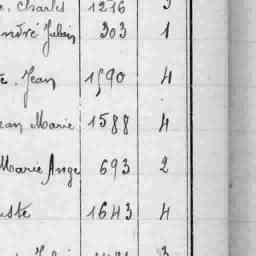 Charles 1216 3
André Julien 303 1
Jean 1590 4
Marie 1588 4
Marie Ange 693 2
1643 4